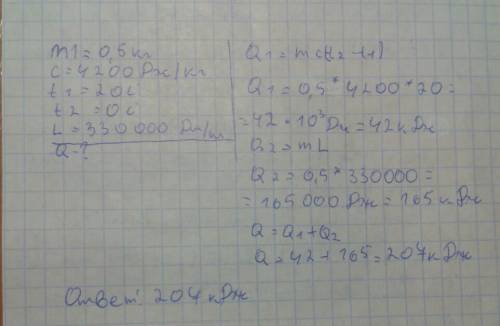 m1=0,5кг
C=4200Дж/кг
t1=20с
t2=0с
L=330000 Дж/кг
Q-?
Q1=mc(t2-t1)
Q1=0,5*4200*20=
=42*10³Дж=42кДж
Q2=mL
Q2=0,5*330000=
=165000Дж=165кДж
Q=Q1+Q2
Q=42+165=207кДж
Ответ: 207кДж